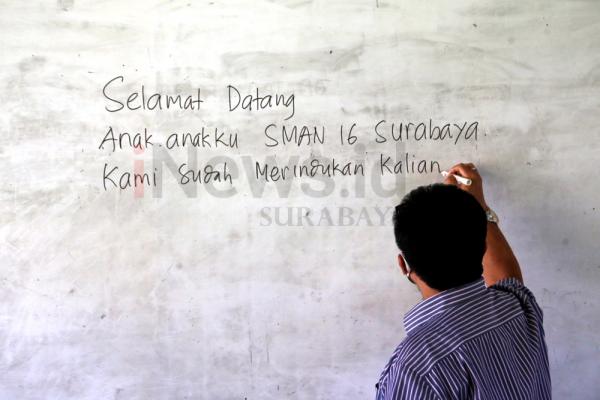 Selamat Datang
Anak.anakku SMAN 16 Surabaya.
Kami Sudah Merindukan Kalian
iNews.id
SURABAYA